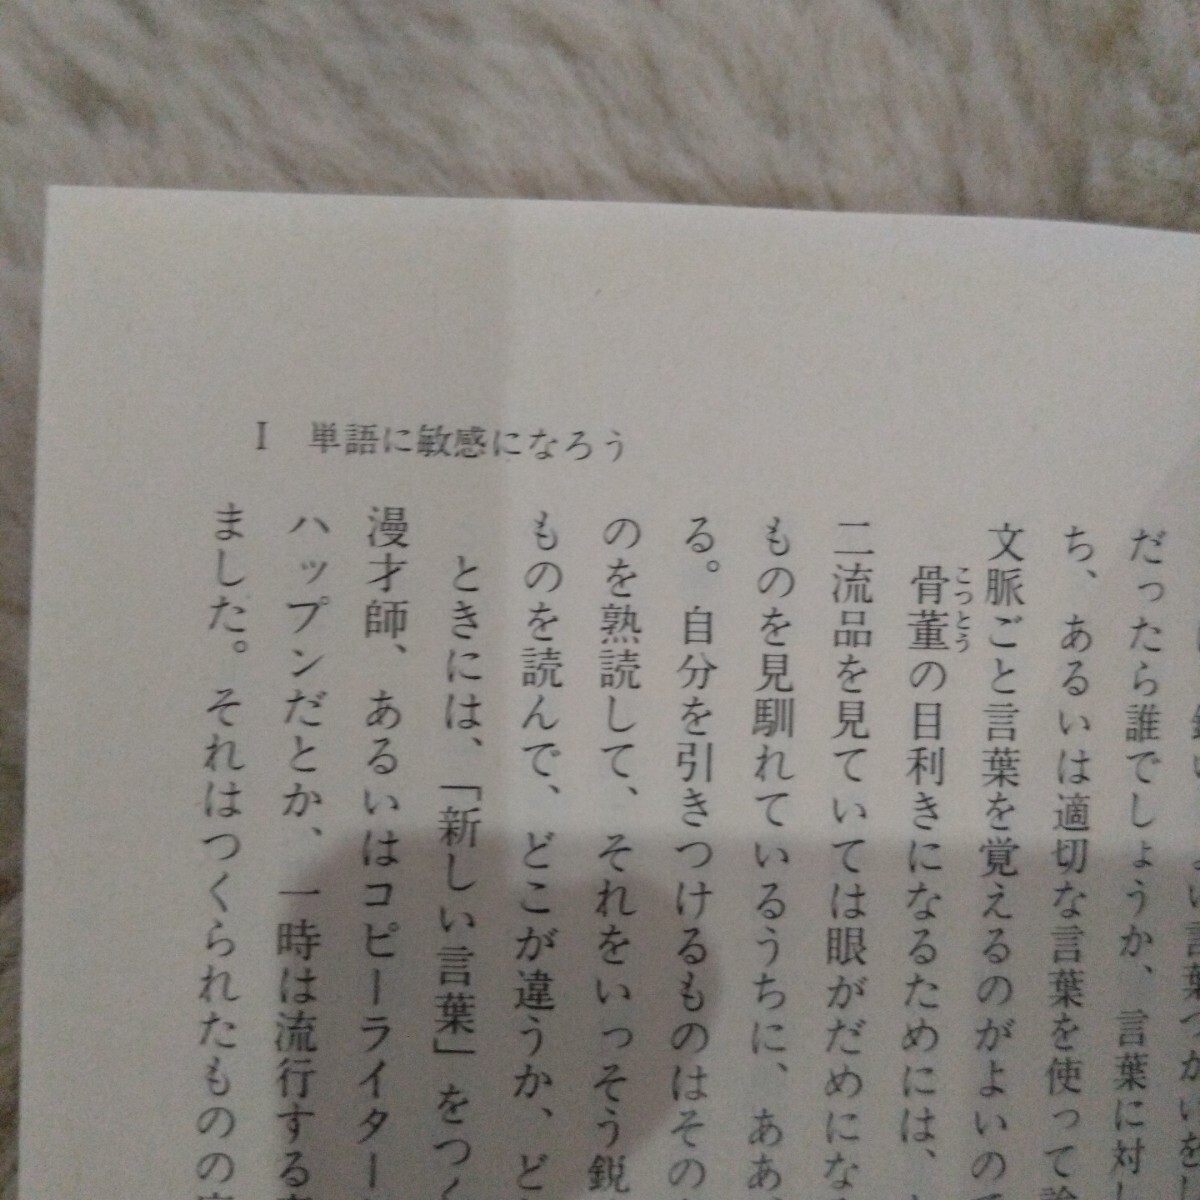 I 単語に敏感になろう
よい言葉づかいをし
だったら誰でしょうか、言葉に対し
ち、あるいは適切な言葉を使って
文脈ごと言葉を覚えるのがよいので
骨董の目利きになるためには、
こっとう
二流品を見ていては眼がだめにな
ものを見馴れているうちに、ああ
る。自分を引きつけるものはその
のを熟読して、それをいっそう鋭
ものを読んで、どこが違うか、ど
ときには、「新しい言葉」をつく
漫才師、あるいはコピーライター
ハップンだとか、一時は流行する
ました。それはつくられたものの